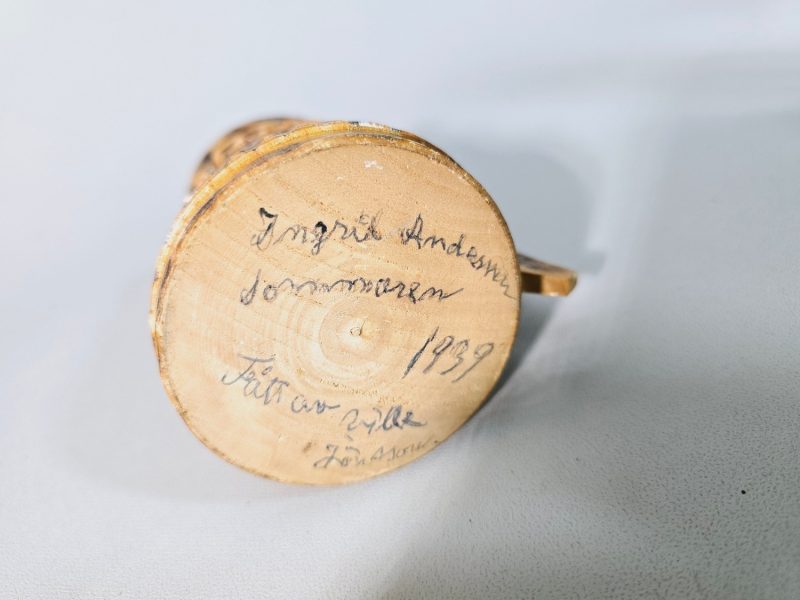 Ingrid Andersson
Sommaren
1939
Fått av Ville
Jönsson